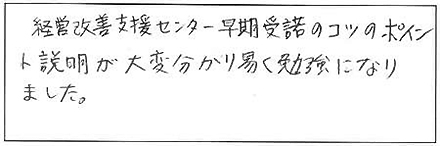 経営改善支援センター早期受諾のコツのポイン
ト説明が大変分かり易く勉強になり
ました。